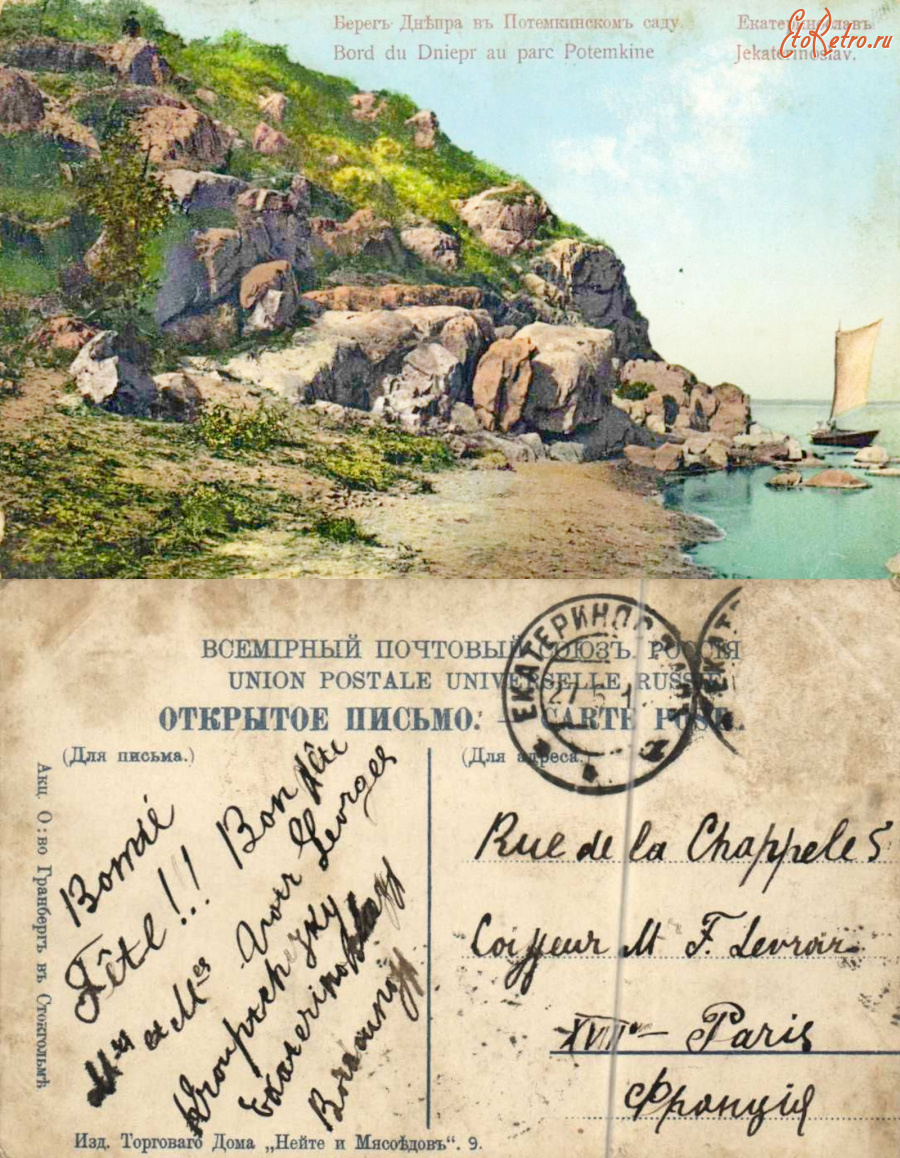 Берегъ Днѣпра въ Потемкинскомъ саду. Екатеринославъ
EtoRetro.ru
Bord du Dniepr au parc Potemkine Jekaterinoslav.
ВСЕМІРНЫЙ ПОЧТОВЫЙ СОЮЗЪ. РОССІЯ
UNION POSTALE UNIVERSELLE RUSSIE
ОТКРЫТОЕ ПИСЬМО. — CARTE POST
ЕКАТЕРИНОСЛ
27 5 1
ЕКАТ
(Для письма.)
(Для адреса.)
Акц. О:во Гранбергъ въ Стокгольмѣ
Bonne
Fête!!! Bon fête
Georges
Rue de la Chappele 5
Coiffeur M F. Levroir
XVIII Paris
Франція
Изд. Торговаго Дома „Нейте и Мясоѣдовъ". 9.